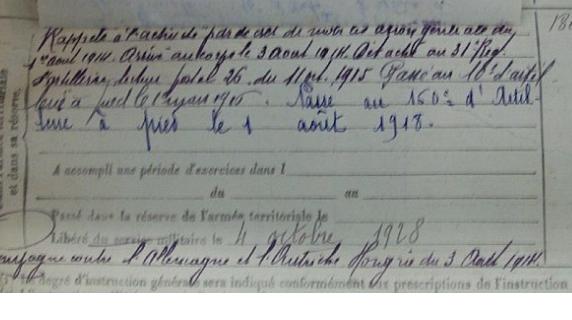 Rappelé à l'activité par décret de mobilisation générale du
1er août 1914. Arrivé au corps le 3 août 1914. Détaché au 31e Rég.
d'artillerie, secteur postal 26, du 11 oct. 1915 Passé au 10e d'artil
lerie à pied le 1 1916. Passé au 160e d'Artil-
lerie à pied le 1 août 1918.
A accompli une période d'exercices dans l
du au
Passé dans la réserve de l'armée territoriale le
Libéré du service militaire le 4 octobre 1928
Campagne contre l'Allemagne et l'Autriche Hongrie du 3 Août 1914.
degré d'instruction générale sera indiqué conformément aux prescriptions de l'instruction
et dans sa réserve.